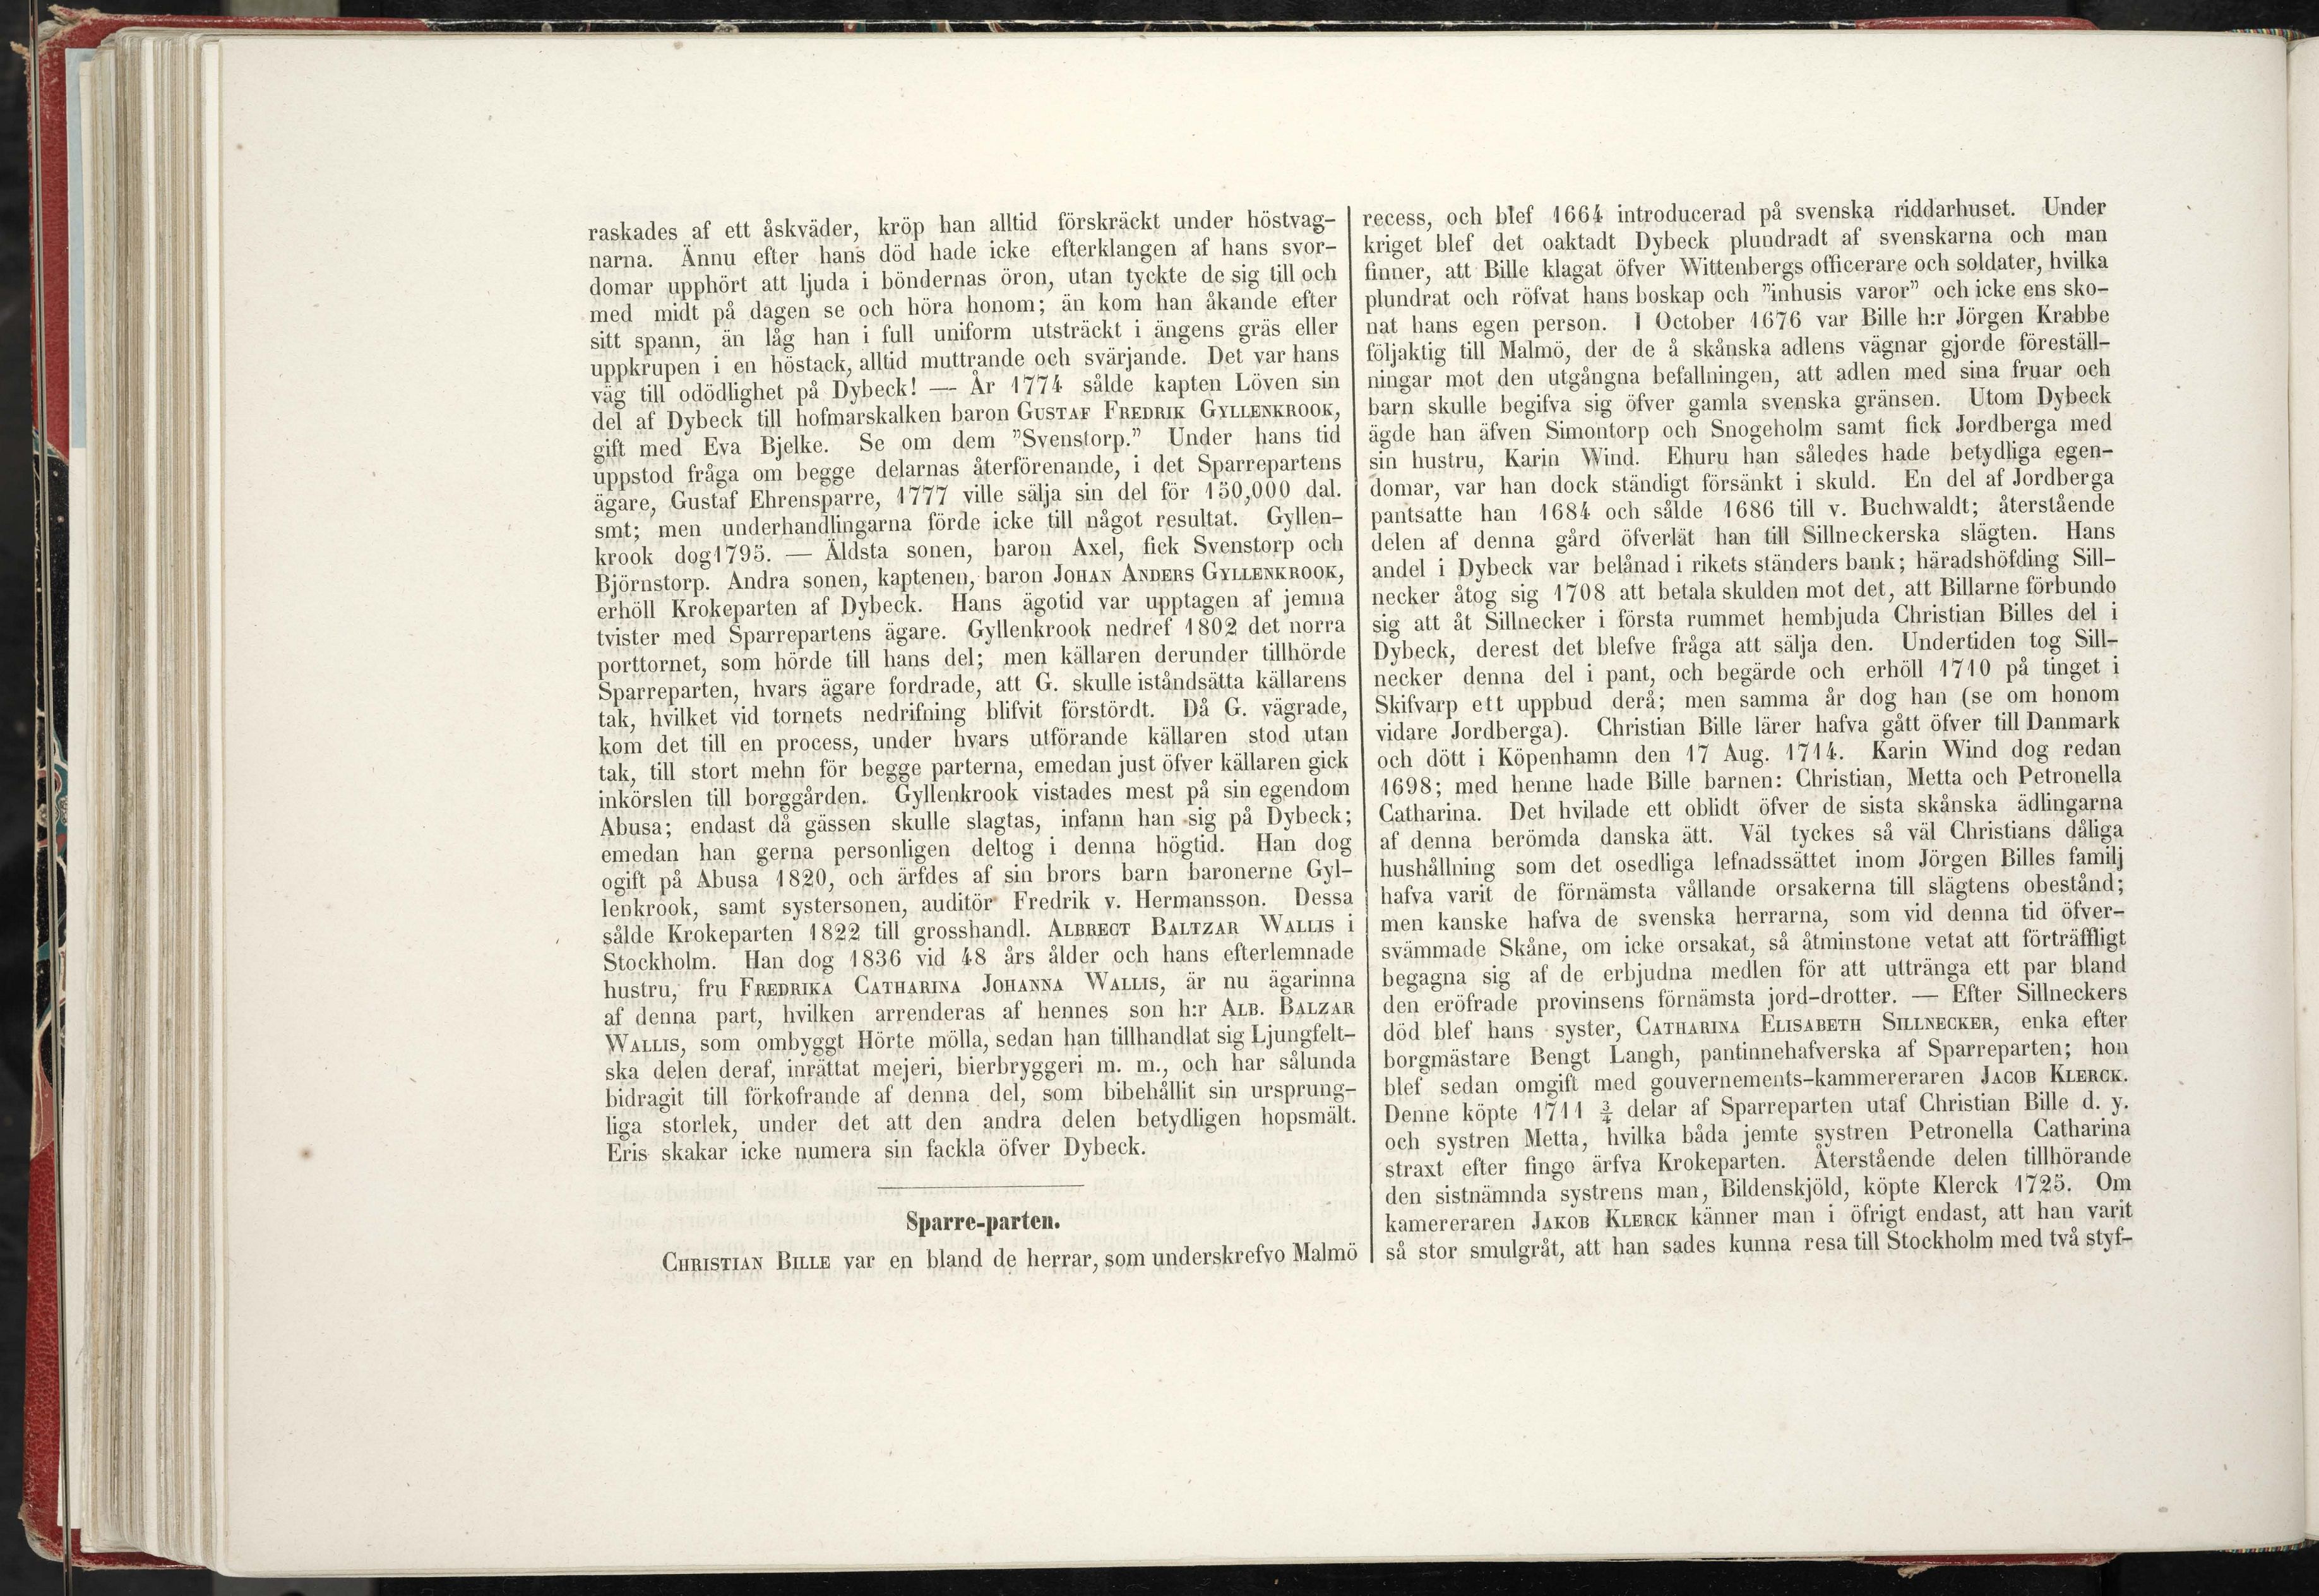 raskades af ett åskväder, kröp han alltid förskräckt under höstvag-
narna. Ännu efter hans död hade icke efterklangen af hans svor-
domar upphört att ljuda i böndernas öron, utan tyckte de sig till och
med midt på dagen se och höra honom; än kom han åkande efter
sitt spann, än låg han i full uniform utsträckt i ängens gräs eller
uppkrupen i en höstack, alltid muttrande och svärjande. Det var hans
väg till odödlighet på Dybeck! — År 1774 sålde kapten Löven sin
del af Dybeck till hofmarskalken baron GUSTAF FREDRIK GYLLENKROOK,
gift med Eva Bjelke. Se om dem ”Svenstorp.” Under hans tid
uppstod fråga om begge delarnas återförenande, i det Sparrepartens
ägare, Gustaf Ehrensparre, 1777 ville sälja sin del för 150,000 dal.
smt; men underhandlingarna förde icke till något resultat. Gyllen-
krook dog1795. — Äldsta sonen, baron Axel, fick Svenstorp och
Björnstorp. Andra sonen, kaptenen, baron JOHAN ANDERS GYLLENKROOK,
erhöll Krokeparten af Dybeck. Hans ägotid var upptagen af jemna
tvister med Sparrepartens ägare. Gyllenkrook nedref 1802 det norra
porttornet, som hörde till hans del; men källaren derunder tillhörde
Sparreparten, hvars ägare fordrade, att G. skulle iståndsätta källarens
tak, hvilket vid tornets nedrifning blifvit förstördt. Då G. vägrade,
kom det till en process, under hvars utförande källaren stod utan
tak, till stort mehn för begge parterna, emedan just öfver källaren gick
inkörslen till borggården. Gyllenkrook vistades mest på sin egendom
Abusa; endast då gässen skulle slagtas, infann han sig på Dybeck;
emedan han gerna personligen deltog i denna högtid. Han dog
ogift på Abusa 1820, och ärfdes af sin brors barn baronerne Gyl-
lenkrook, samt systersonen, auditör Fredrik v. Hermansson. Dessa
sålde Krokeparten 1822 till grosshandl. ALBRECT BALTZAR WALLIS i
Stockholm. Han dog 1836 vid 48 års ålder och hans efterlemnade
hustru, fru FREDRIKA CATHARINA JOHANNA WALLIS, är nu ägarinna
af denna part, hvilken arrenderas af hennes son h:r ALB. BALZAR
WALLIS, som ombyggt Hörte mölla, sedan han tillhandlat sig Ljungfelt-
ska delen deraf, inrättat mejeri, bierbryggeri m. m., och har sålunda
bidragit till förkofrande af denna del, som bibehållit sin ursprung-
liga storlek, under det att den andra delen betydligen hopsmält.
Eris skakar icke numera sin fackla öfver Dybeck.
Sparre-parten.
CHRISTIAN BILLE var en bland de herrar, som underskrefvo Malmö
recess, och blef 1664 introducerad på svenska riddarhuset. Under
kriget blef det oaktadt Dybeck plundradt af svenskarna och man
finner, att Bille klagat öfver Wittenbergs officerare och soldater, hvilka
plundrat och röfvat hans boskap och ”inhusis varor” och icke ens sko-
nat hans egen person. I October 1676 var Bille h:r Jörgen Krabbe
följaktig till Malmö, der de å skånska adlens vägnar gjorde föreställ-
ningar mot den utgångna befallningen, att adlen med sina fruar och
barn skulle begifva sig öfver gamla svenska gränsen. Utom Dybeck
ägde han äfven Simontorp och Snogeholm samt fick Jordberga med
sin hustru, Karin Wind. Ehuru han således hade betydliga egen-
domar, var han dock ständigt försänkt i skuld. En del af Jordberga
pantsatte han 1684 och sålde 1686 till v. Buchwaldt; återstående
delen af denna gård öfverlät han till Sillneckerska slägten. Hans
andel i Dybeck var belånad i rikets ständers bank; häradshöfding Sill-
necker åtog sig 1708 att betala skulden mot det, att Billarne förbundo
sig att åt Sillnecker i första rummet hembjuda Christian Billes del i
Dybeck, derest det blefve fråga att sälja den. Undertiden tog Sill-
necker denna del i pant, och begärde och erhöll 1710 på tinget i
Skifvarp ett uppbud derå; men samma år dog han (se om honom
vidare Jordberga). Christian Bille lärer hafva gått öfver till Danmark
och dött i Köpenhamn den 17 Aug. 1714. Karin Wind dog redan
1698; med henne hade Bille barnen: Christian, Metta och Petronella
Catharina. Det hvilade ett oblidt öfver de sista skånska ädlingarna
af denna berömda danska ätt. Väl tyckes så väl Christians dåliga
hushållning som det osedliga lefnadssättet inom Jörgen Billes familj
hafva varit de förnämsta vållande orsakerna till slägtens obestånd;
men kanske hafva de svenska herrarna, som vid denna tid öfver-
svämmade Skåne, om icke orsakat, så åtminstone vetat att förträffligt
begagna sig af de erbjudna medlen för att uttränga ett par bland
den eröfrade provinsens förnämsta jord-drotter. — Efter Sillneckers
död blef hans syster, CATHARINA ELISABETH SILLNECKER, enka efter
borgmästare Bengt Langh, pantinnehafverska af Sparreparten; hon
blef sedan omgift med gouvernements-kammereraren JACOB KLERCK.
Denne köpte 1711 ¾ delar af Sparreparten utaf Christian Bille d. y.
och systren Metta, hvilka båda jemte systren Petronella Catharina
straxt efter fingo ärfva Krokeparten. Återstående delen tillhörande
den sistnämnda systrens man, Bildenskjöld, köpte Klerck 1725. Om
kamereraren JAKOB KLERCK känner man i öfrigt endast, att han varit
så stor smulgråt, att han sades kunna resa till Stockholm med två styf-